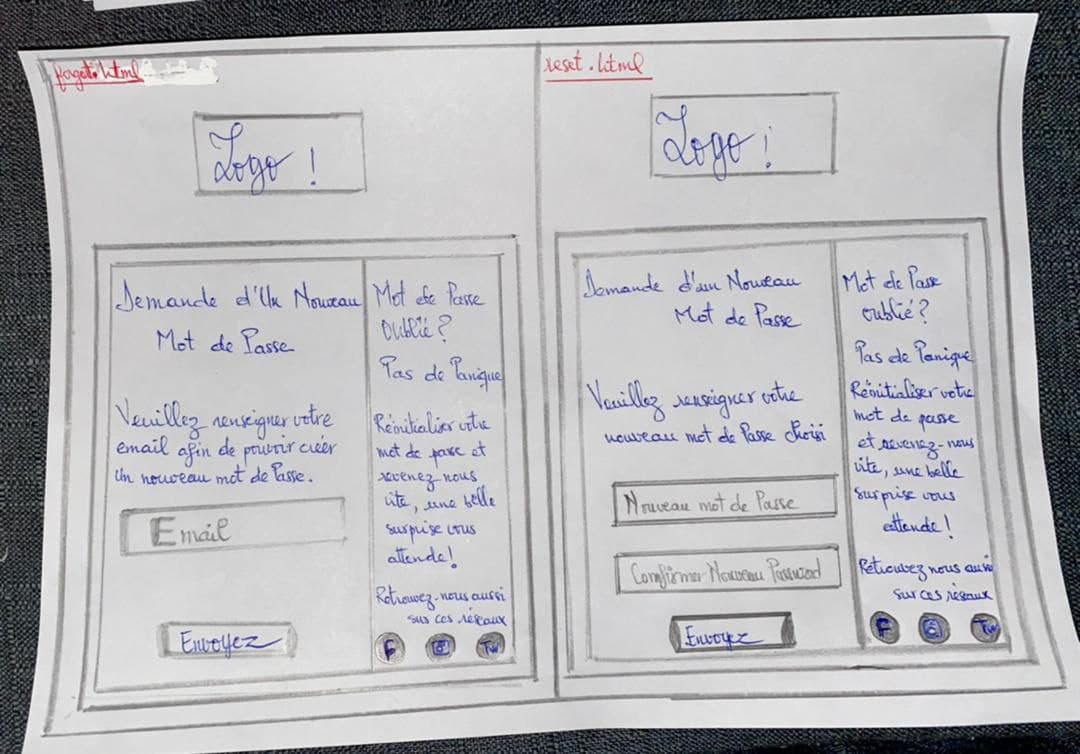 forget.html
Logo !
Demande d'Un Nouveau
Mot de Passe
Veuillez renseigner votre
email afin de pouvoir créer
Un nouveau mot de Passe.
Email
Envoyez
Mot de Passe
Oublié ?
Pas de Panique
Réinitialiser votre
mot de passe et
revenez nous
vite, une belle
surprise vous
attende !
Retrouvez-nous aussi
sur ces réseaux
F
Tw
reset.html
Logo !
Demande d'un Nouveau
Mot de Passe
Veuillez renseigner votre
nouveau mot de Passe choisi
Nouveau mot de Passe
Confirmer Nouveau Password
Envoyez
Mot de Passe
oublié ?
Pas de Panique
Réinitialiser votre
mot de passe
et revenez-nous
vite, une belle
surprise vous
attende !
Retrouvez nous aussi
sur ces réseaux
F
Tw